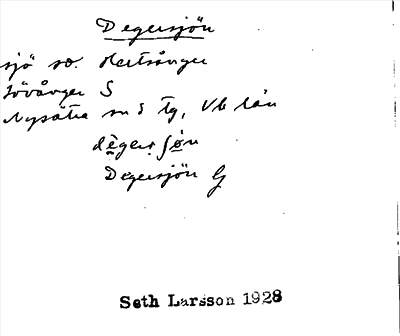 Degersjön
sjö sv. Hertsånger
Lövånger S
Nysätra sn o tg, Vb län
dègersjön
Degersjön G
Seth Larsson 1928